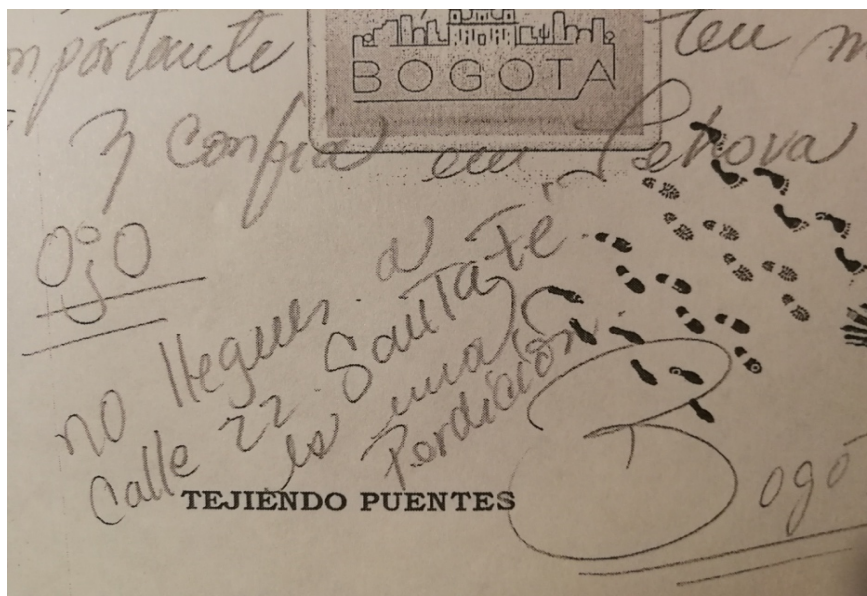 mportante ten m
BOGOTA
y confía en Jehova
OjO
no llegues a
Calle 22 Santafé
es una
Perdición.
TEJIENDO PUENTES
Bogó